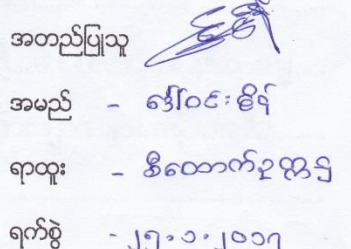 အတည်ပြုသူ
အမည် - ဒေါ်ဝင်းစိန်
ရာထူး - ဒီထောက်ဥက္ကဋ္ဌ
ရက်စွဲ - ၂၅.၁.၂၀၁၇